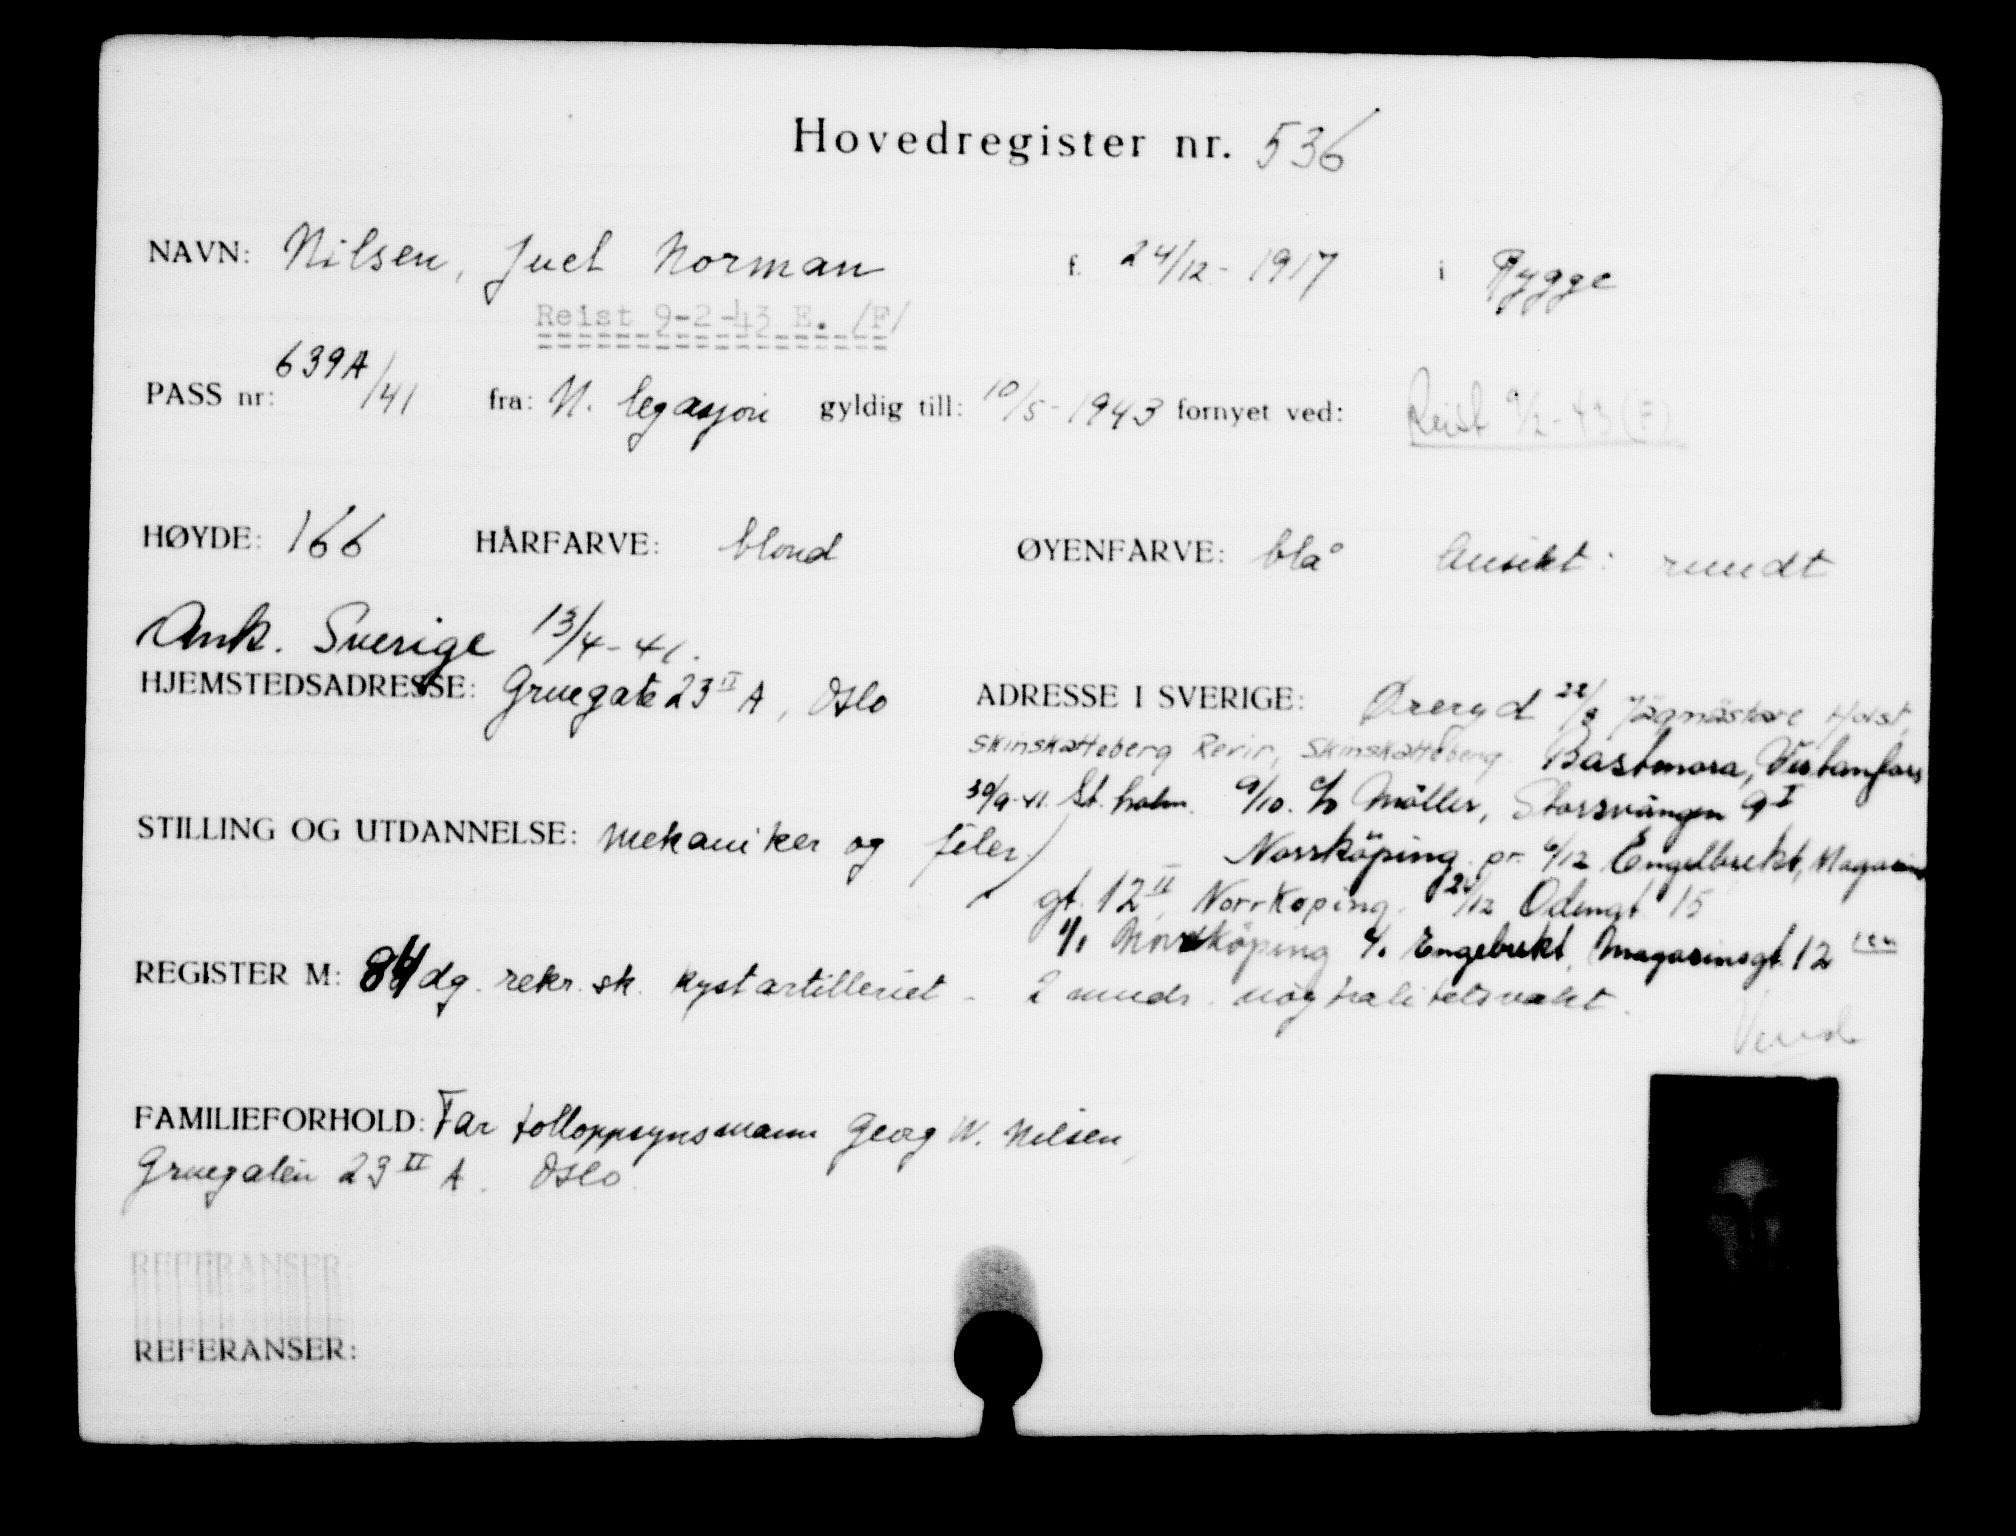 Hovedregister nr. 536
NAVN: Nilsen, Juel Norman f. 24/12-1917 i Rygge
Reist 9-2-43 E. /F/
PASS nr: 639A/41 fra: N. legasjon gyldig till: 10/5-1943 fornyet ved: Reist 9/2-43 (F)
HØYDE: 166 HÅRFARVE: blond ØYENFARVE: blå Ansikt: rundt
Ank. Sverige 13/4-41.
HJEMSTEDSADRESSE: Gruegate 23 II A, Oslo ADRESSE I SVERIGE: Øreryd 22/8 Jägmästare Holst,
Skinskatteberg Revir, Skinskatteberg Bastmora, Västanfors
30/9-41. St.holm. 9/10. c/o Möller, Storsvängen 9 I
STILLING OG UTDANNELSE: Mekaniker og filer)
Norrköping. pr. 6/12 Engelbrekt, Magasins
gt. 12 II, Norrkøping. 12 Odengt. 15
1/1 Norrköping c/o Engebrekt, Magasinsgt. 12
REGISTER M: 84 dg. rekr. sk. kystartilleriet - 2 mndr. nøytralitetsvakt.
Vend
FAMILIEFORHOLD: Far tolloppsynsmann Georg W. Nilsen,
Gruegaten 23 II A. Oslo.
REFERANSER
REFERANSER: